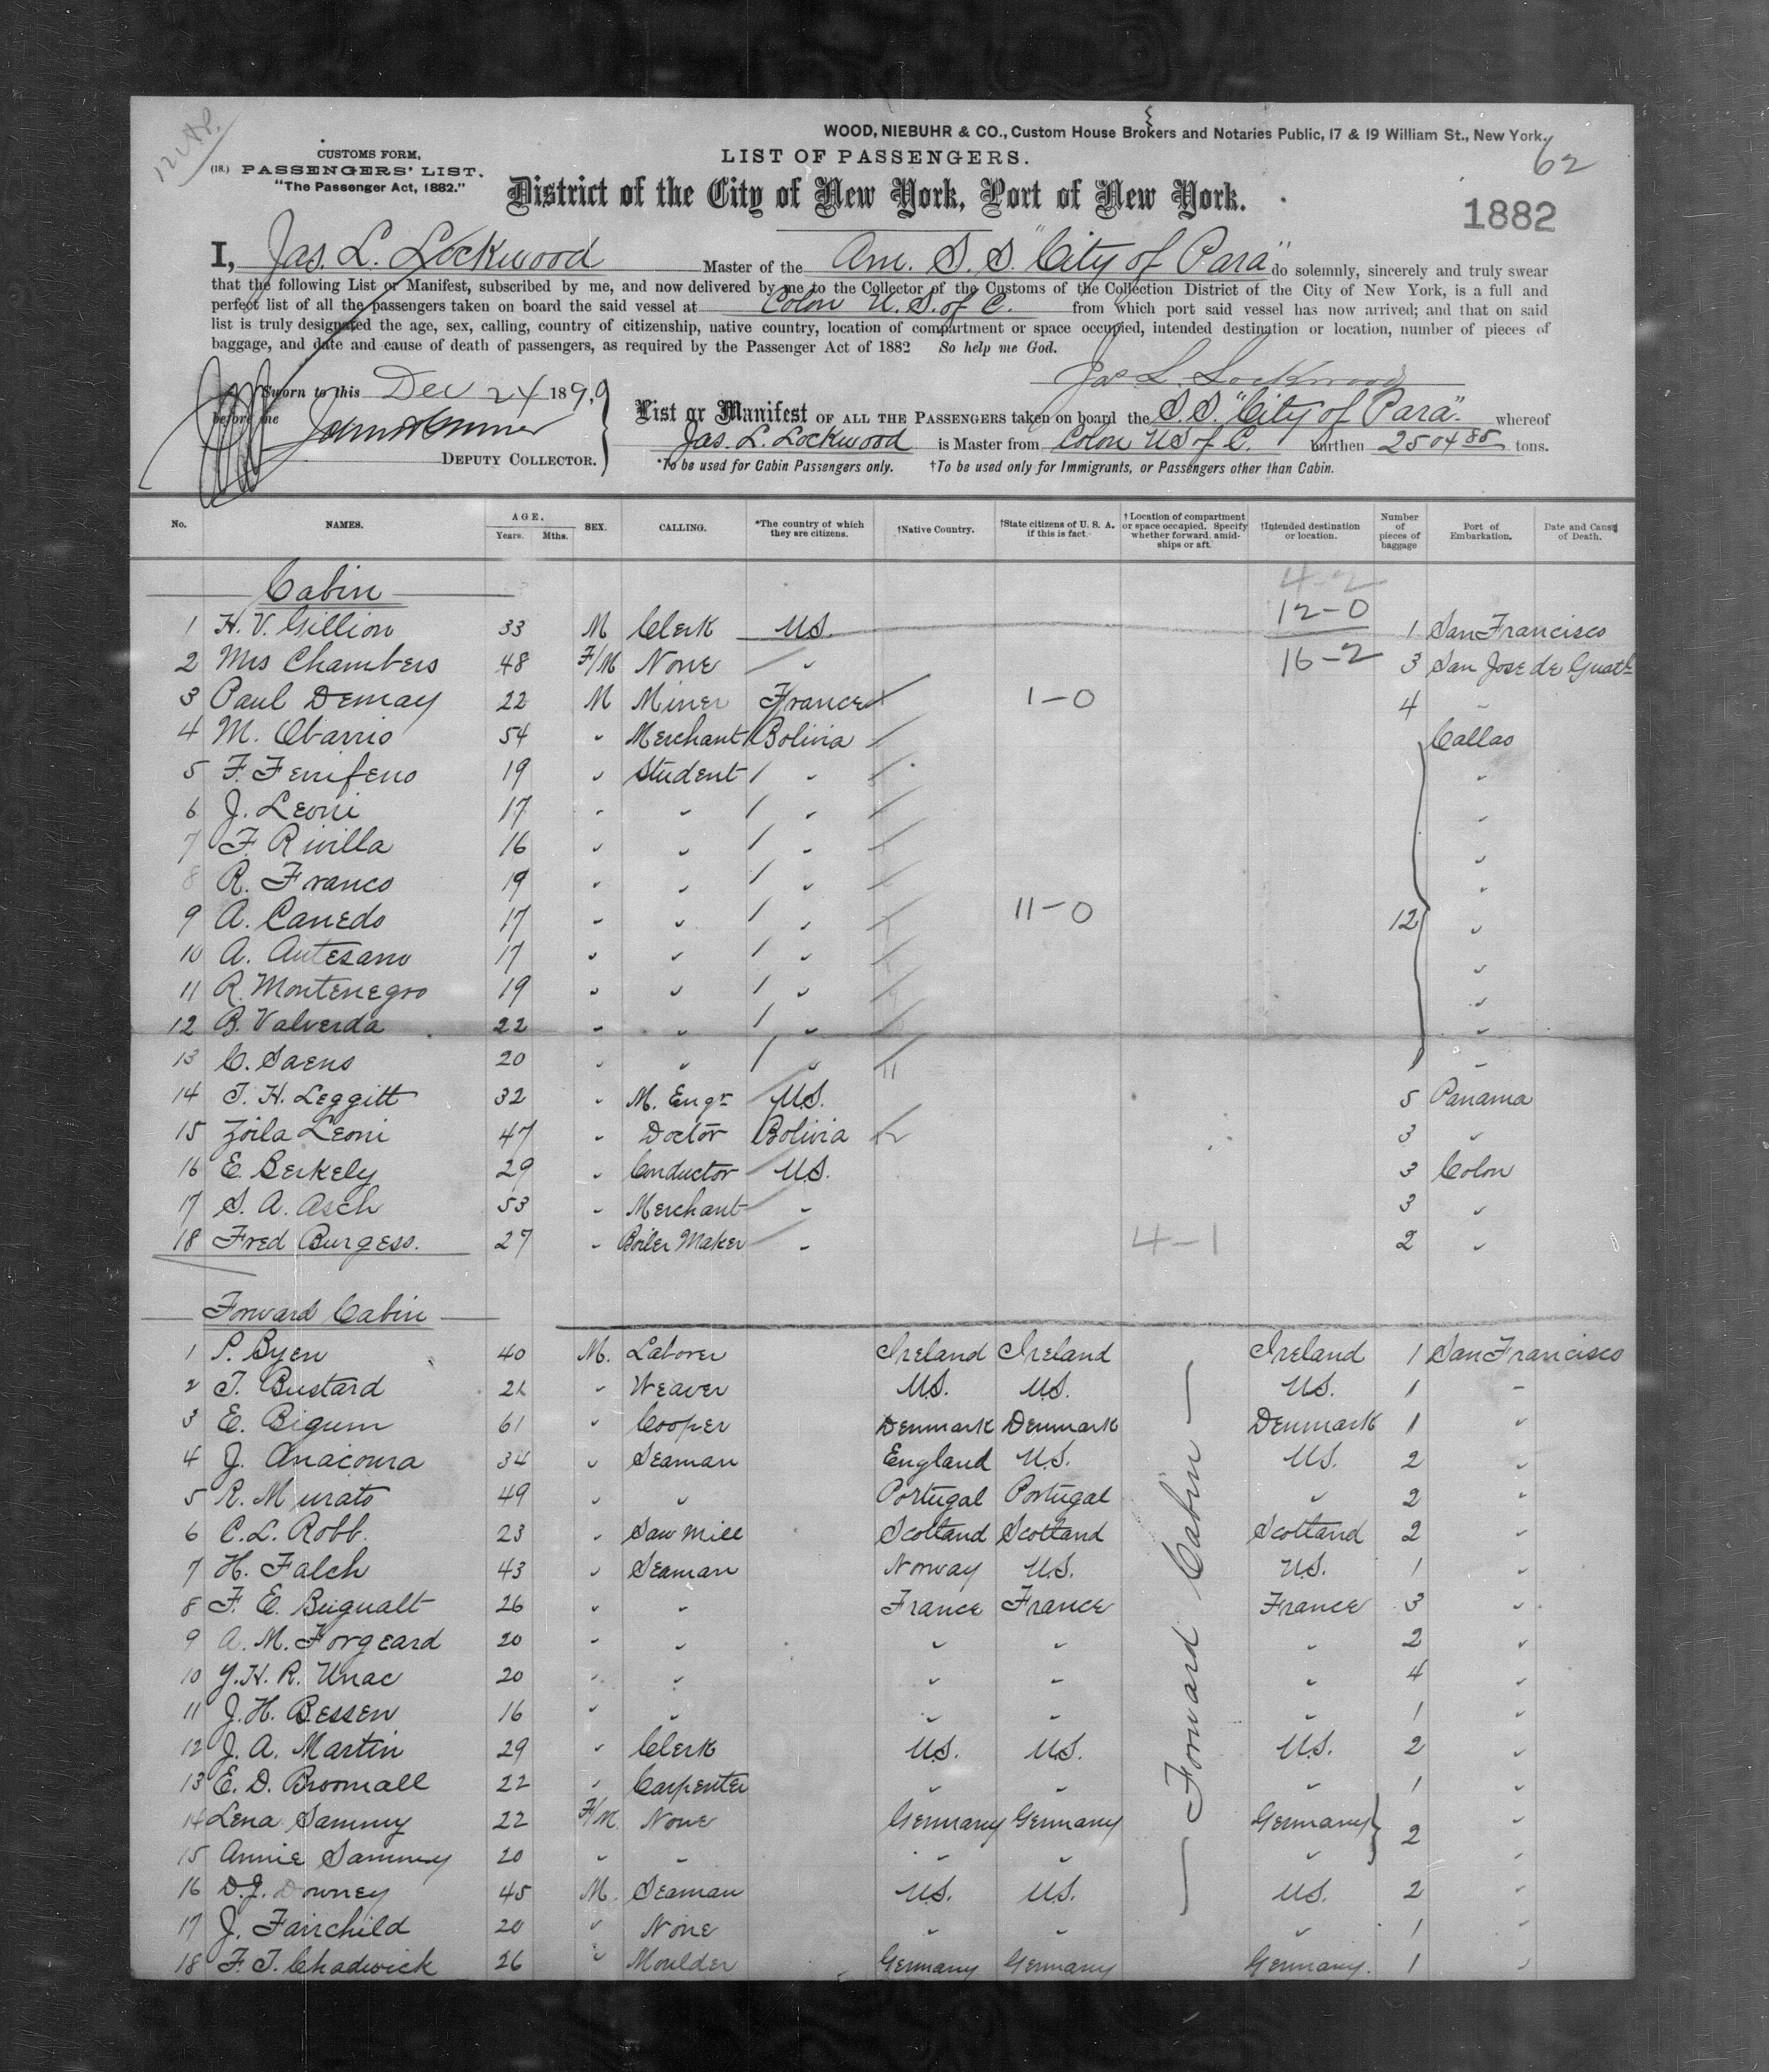 12 AP.
WOOD, NIEBUHR & CO., Custom House Brokers and Notaries Public, 17 & 19 William St., New York.
62
CUSTOMS FORM,
(18.) PASSENGERS' LIST.
"The Passenger Act, 1882."
LIST OF PASSENGERS.
District of the City of New York, Port of New York.
1882
I, Jas. L. Lockwood Master of the Am. S. S. "City of Para" do solemnly, sincerely and truly swear
that the following List or Manifest, subscribed by me, and now delivered by me to the Collector of the Customs of the Collection District of the City of New York, is a full and
perfect list of all the passengers taken on board the said vessel at Colon U. S. of C. from which port said vessel has now arrived; and that on said
list is truly designated the age, sex, calling, country of citizenship, native country, location of compartment or space occupied, intended destination or location, number of pieces of
baggage, and date and cause of death of passengers, as required by the Passenger Act of 1882 So help me God.
Jas L. Lockwood
Sworn to this Dec 24 1899,
before me
DEPUTY COLLECTOR.
List or Manifest OF ALL THE PASSENGERS taken on board the S. S. "City of Para". whereof
Jas. L. Lockwood is Master from Colon US of C. burthen 2504 85 tons.
*To be used for Cabin Passengers only. †To be used only for Immigrants, or Passengers other than Cabin.
No. NAMES. AGE. Years. Mths. SEX. CALLING. *The country of which they are citizens. †Native Country. †State citizens of U. S. A. if this is fact. †Location of compartment or space occupied. Specify whether forward, amidships or aft. †Intended destination or location. Number of pieces of baggage Port of Embarkation. Date and Cause of Death.
Cabin 4-2
12-0
1 H. V. Gillion 33 M Clerk US. 1 San Francisco
2 Mrs Chambers 48 F/M None " 16-2 3 San Jose de Guatla
3 Paul Demay 22 M Miner France 1-0 4 "
4 M. Obarrio 54 " Merchant Bolivia Callao
5 F. 19 " Student " "
6 J. Leoni 17 " " " "
7 F. Rivilla 16 " " " "
8 R. Franco 19 " " " "
9 A. Canedo 17 " " " 11-0 12 "
10 A. Antesano 17 " " " "
11 R. Montenegro 19 " " " "
12 B. Valverda 22 " " " "
13 C. Saens 20 " " " 11 "
14 T. H. Leggitt 32 " M. Engr US. 5 Panama
15 Zoila Leoni 47 " Doctor Bolivia 3 "
16 E. Berkely 29 " Conductor US. 3 Colon
17 S. A. Asch 53 " Merchant " 3 "
18 Fred Burgess. 27 " Boiler Maker " 4-1 2 "
Forward Cabin
1 P. Byen 40 M. Laborer Ireland Ireland Ireland 1 San Francisco
2 T. Bustard 21 " Weaver US. US. US. 1 "
3 E. Bigum 61 " Cooper Denmark Denmark Denmark 1 "
4 J. Anacoura 34 " Seaman England U.S. US. 2 "
5 R. Murato 49 " " Portugal Portugal " 2 "
6 C. L. Robb. 23 " Saw Mill Scotland Scotland Scotland 2 "
7 H. Falch 43 " Seaman Norway U.S. US. 1 "
8 F. E. Bugualt 26 " " France France France 3 "
9 A. M. Forgeard 20 " " " " " 2 "
10 Y. H. R. Unac 20 " " " " " 4 "
11 J. H. Bessen 16 " " " " " 1 "
12 J. A. Martin 29 " Clerk US. US. US. 2 "
13 E. D. Broomall 22 " Carpenter " " " 1 "
14 Lena Sammy 22 F/M. None Germany Germany Germany 2 "
15 Annie Sammy 20 " " " " " "
16 D. J. Downey 45 M. Seaman US. US. US. 2 "
17 J. Fairchild 20 " None " " " 1 "
18 F. T. Chadwick 26 " Moulder Germany Germany Germany. 1 "
Forward Cabin